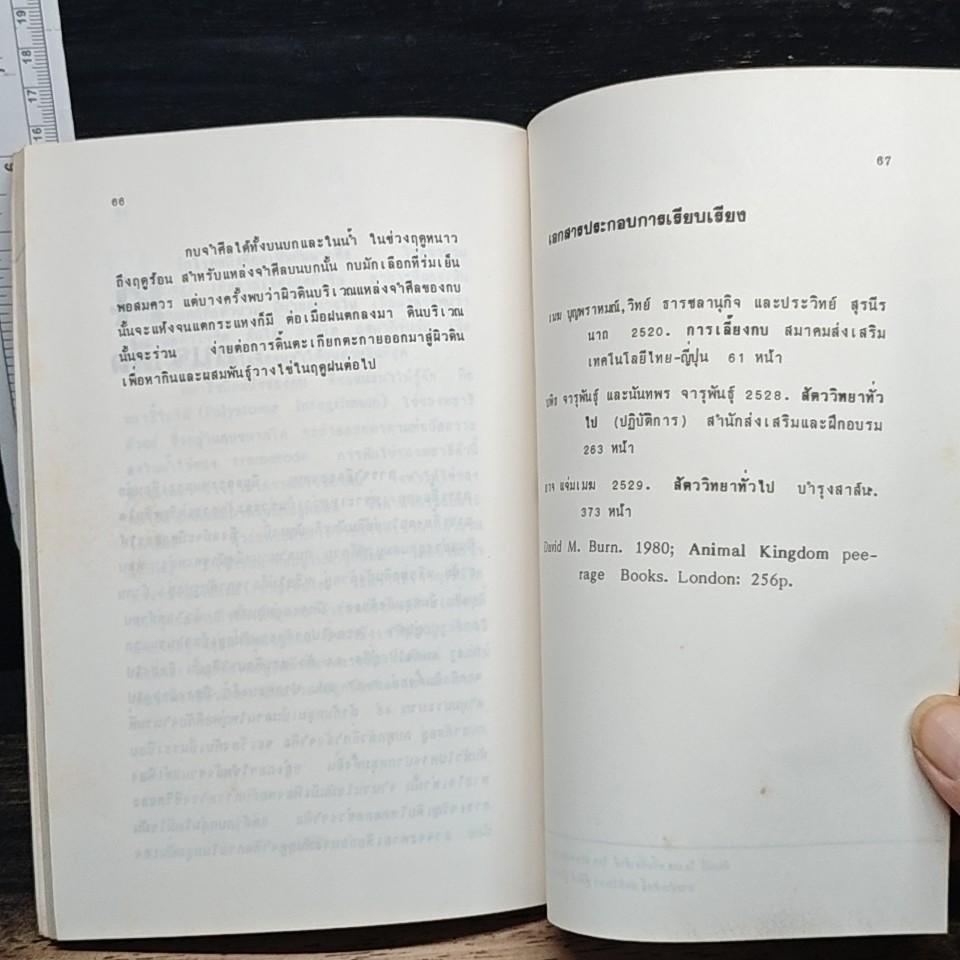 19
18
17
16
66
กบจำศีลได้ทั้งบนบกและในน้ำ ในช่วงฤดูหนาว
ถึงฤดูร้อน สำหรับแหล่งจำศีลบนบกนั้น กบมักเลือกที่ร่มเย็น
พอสมควร แต่บางครั้งพบว่าผิวดินบริเวณแหล่งจำศีลของกบ
นั้นจะแห้งจนแตกระแหงก็มี ต่อเมื่อฝนตกลงมา ดินบริเวณ
นั้นจะร่วน ง่ายต่อการดิ้นตะเกียกตะกายออกมาสู่ผิวดิน
เพื่อหากินและผสมพันธุ์วางไข่ในฤดูฝนต่อไป
67
เอกสารประกอบการเรียบเรียง
เมฆ บุญพราหมณ์,วิทย์ ธารชลานุกิจ และประวิทย์ สุรนีร
นาถ 2520. การเลี้ยงกบ สมาคมส่งเสริม
เทคโนโลยีไทย-ญี่ปุ่น 61 หน้า
จารุพันธุ์ และนันทพร จารุพันธุ์ 2528. สัตววิทยาทั่ว
ไป (ปฏิบัติการ) สำนักส่งเสริมและฝึกอบรม
263 หน้า
แจ่มเมฆ 2529. สัตววิทยาทั่วไป บำรุงสาส์น.
373 หน้า
David M. Burn. 1980; Animal Kingdom pee-
rage Books. London: 256p.